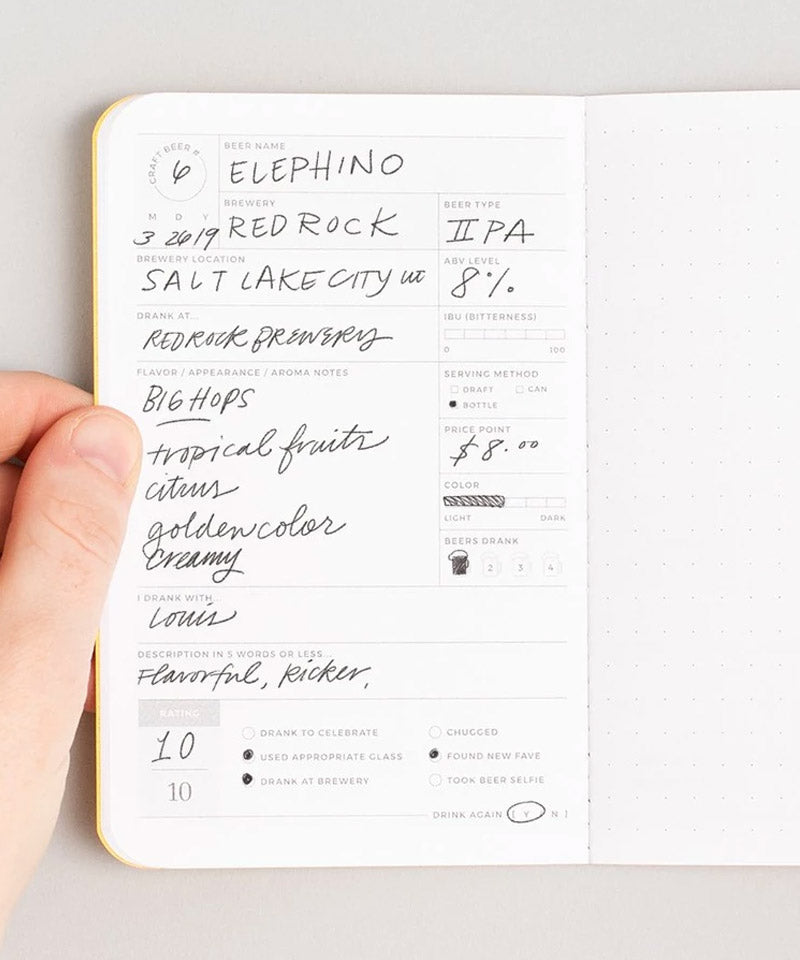 CRAFT BEER #
6
BEER NAME
ELEPHINO
M D Y
3 26 19
BREWERY
RED ROCK
BEER TYPE
IIPA
BREWERY LOCATION
SALT LAKE CITY UT
ABV LEVEL
8%
DRANK AT...
REDROCK BREWERY
IBU (BITTERNESS)
0 100
FLAVOR / APPEARANCE / AROMA NOTES
BIG HOPS
tropical fruits
citrus
golden color
creamy
SERVING METHOD
DRAFT CAN
BOTTLE
PRICE POINT
$8.00
COLOR
LIGHT DARK
BEERS DRANK
2 3 4
I DRANK WITH...
Louis
DESCRIPTION IN 5 WORDS OR LESS...
Flavorful, kicker,
RATING
10
10
DRANK TO CELEBRATE
USED APPROPRIATE GLASS
DRANK AT BREWERY
CHUGGED
FOUND NEW FAVE
TOOK BEER SELFIE
DRINK AGAIN [ Y N ]